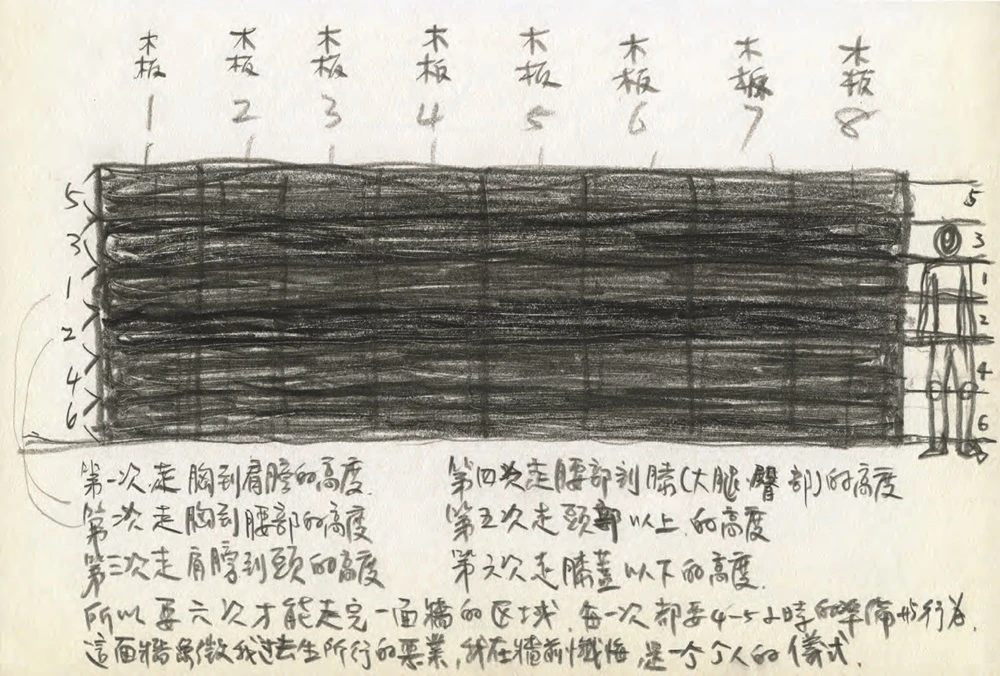 木板 木板 木板 木板 木板 木板 木板 木板
1 2 3 4 5 6 7 8
5 5
3 3
1 1
2 2
4 4
6 6
第一次走胸到肩膀的高度. 第四次走腰部到膝(大腿.臀部)的高度
第二次走胸到腰部的高度 第五次走頭部以上.的高度
第三次走肩膀到頭的高度 第六次走膝蓋以下的高度.
所以要六次才能走完一面牆的区域.每一次都要4-5小時的準備和行為.
這面牆象徵我过去生所行的惡業,我在牆前懺悔,是一个个人的儀式.